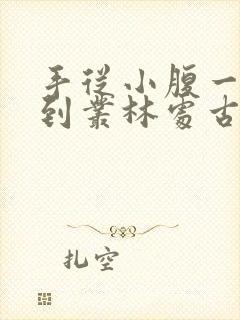 手從小腹一
到叢林處古
扎空